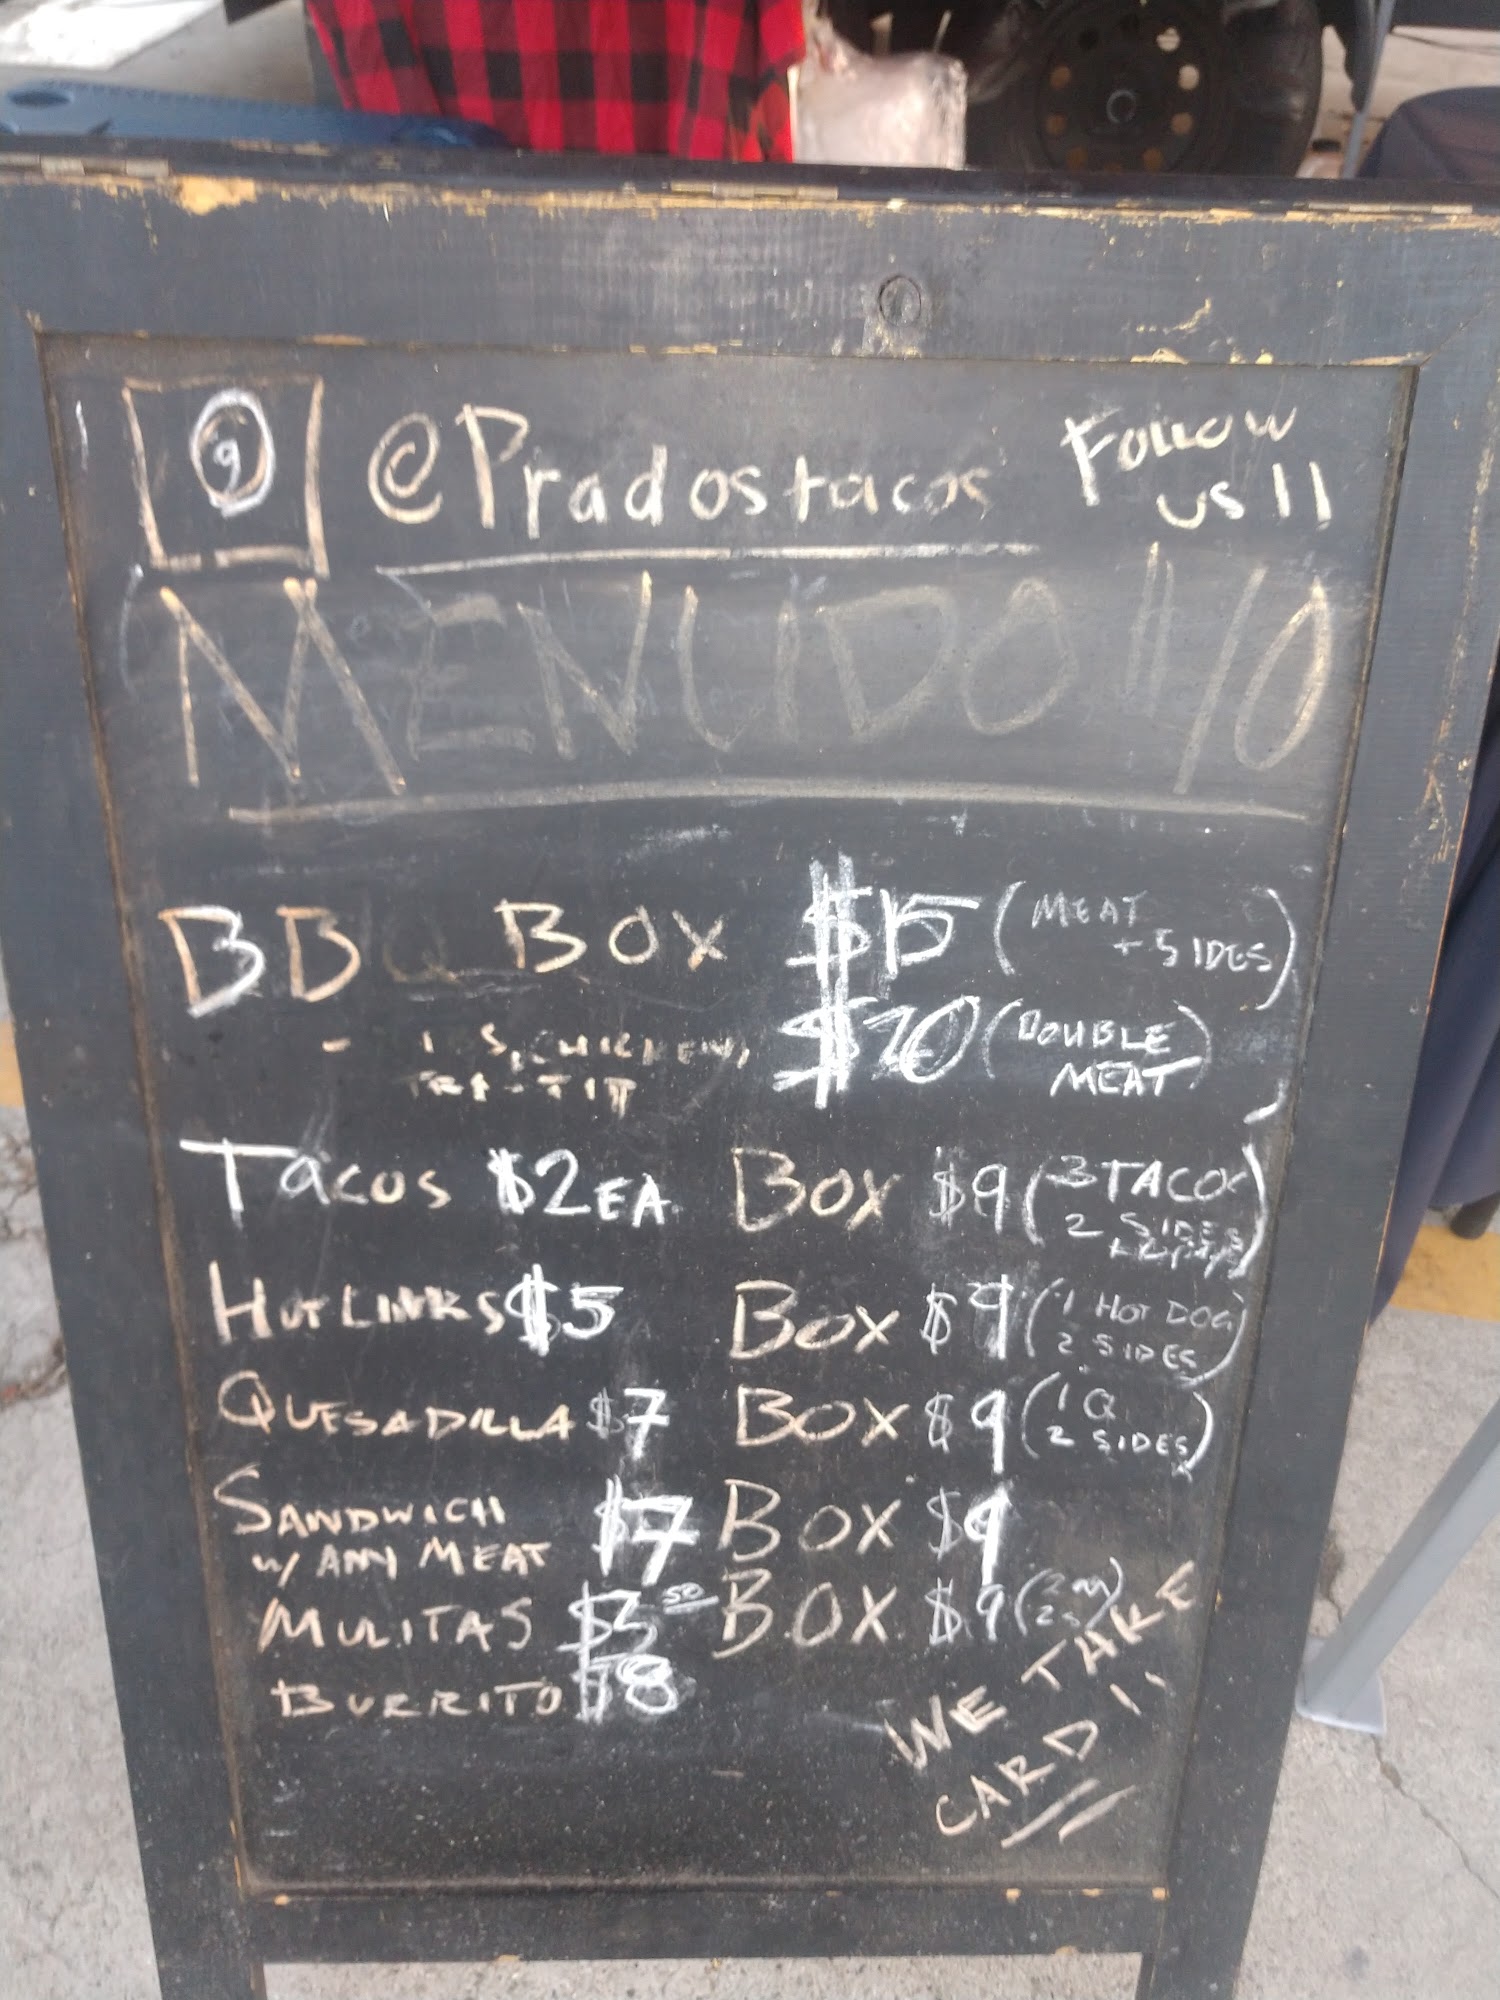 @Pradostacos Follow
us!!
MENUDO $10
BBQ BOX $15 (MEAT
+ SIDES)
CHICKEN, $20 (DOUBLE
TRI-TIP MEAT)
TACOS $2 EA BOX $9 (3 TACOS
2 SIDES
HOT LINKS $5 BOX $9 (1 HOT DOG
2 SIDES)
QUESADILLA $7 BOX $9 (1 Q
2 SIDES)
SANDWICH $7 BOX $9
W/ ANY MEAT
MULITAS $3.50 BOX $9 (2 M
2 S)
BURRITO $8
WE TAKE
CARD!!